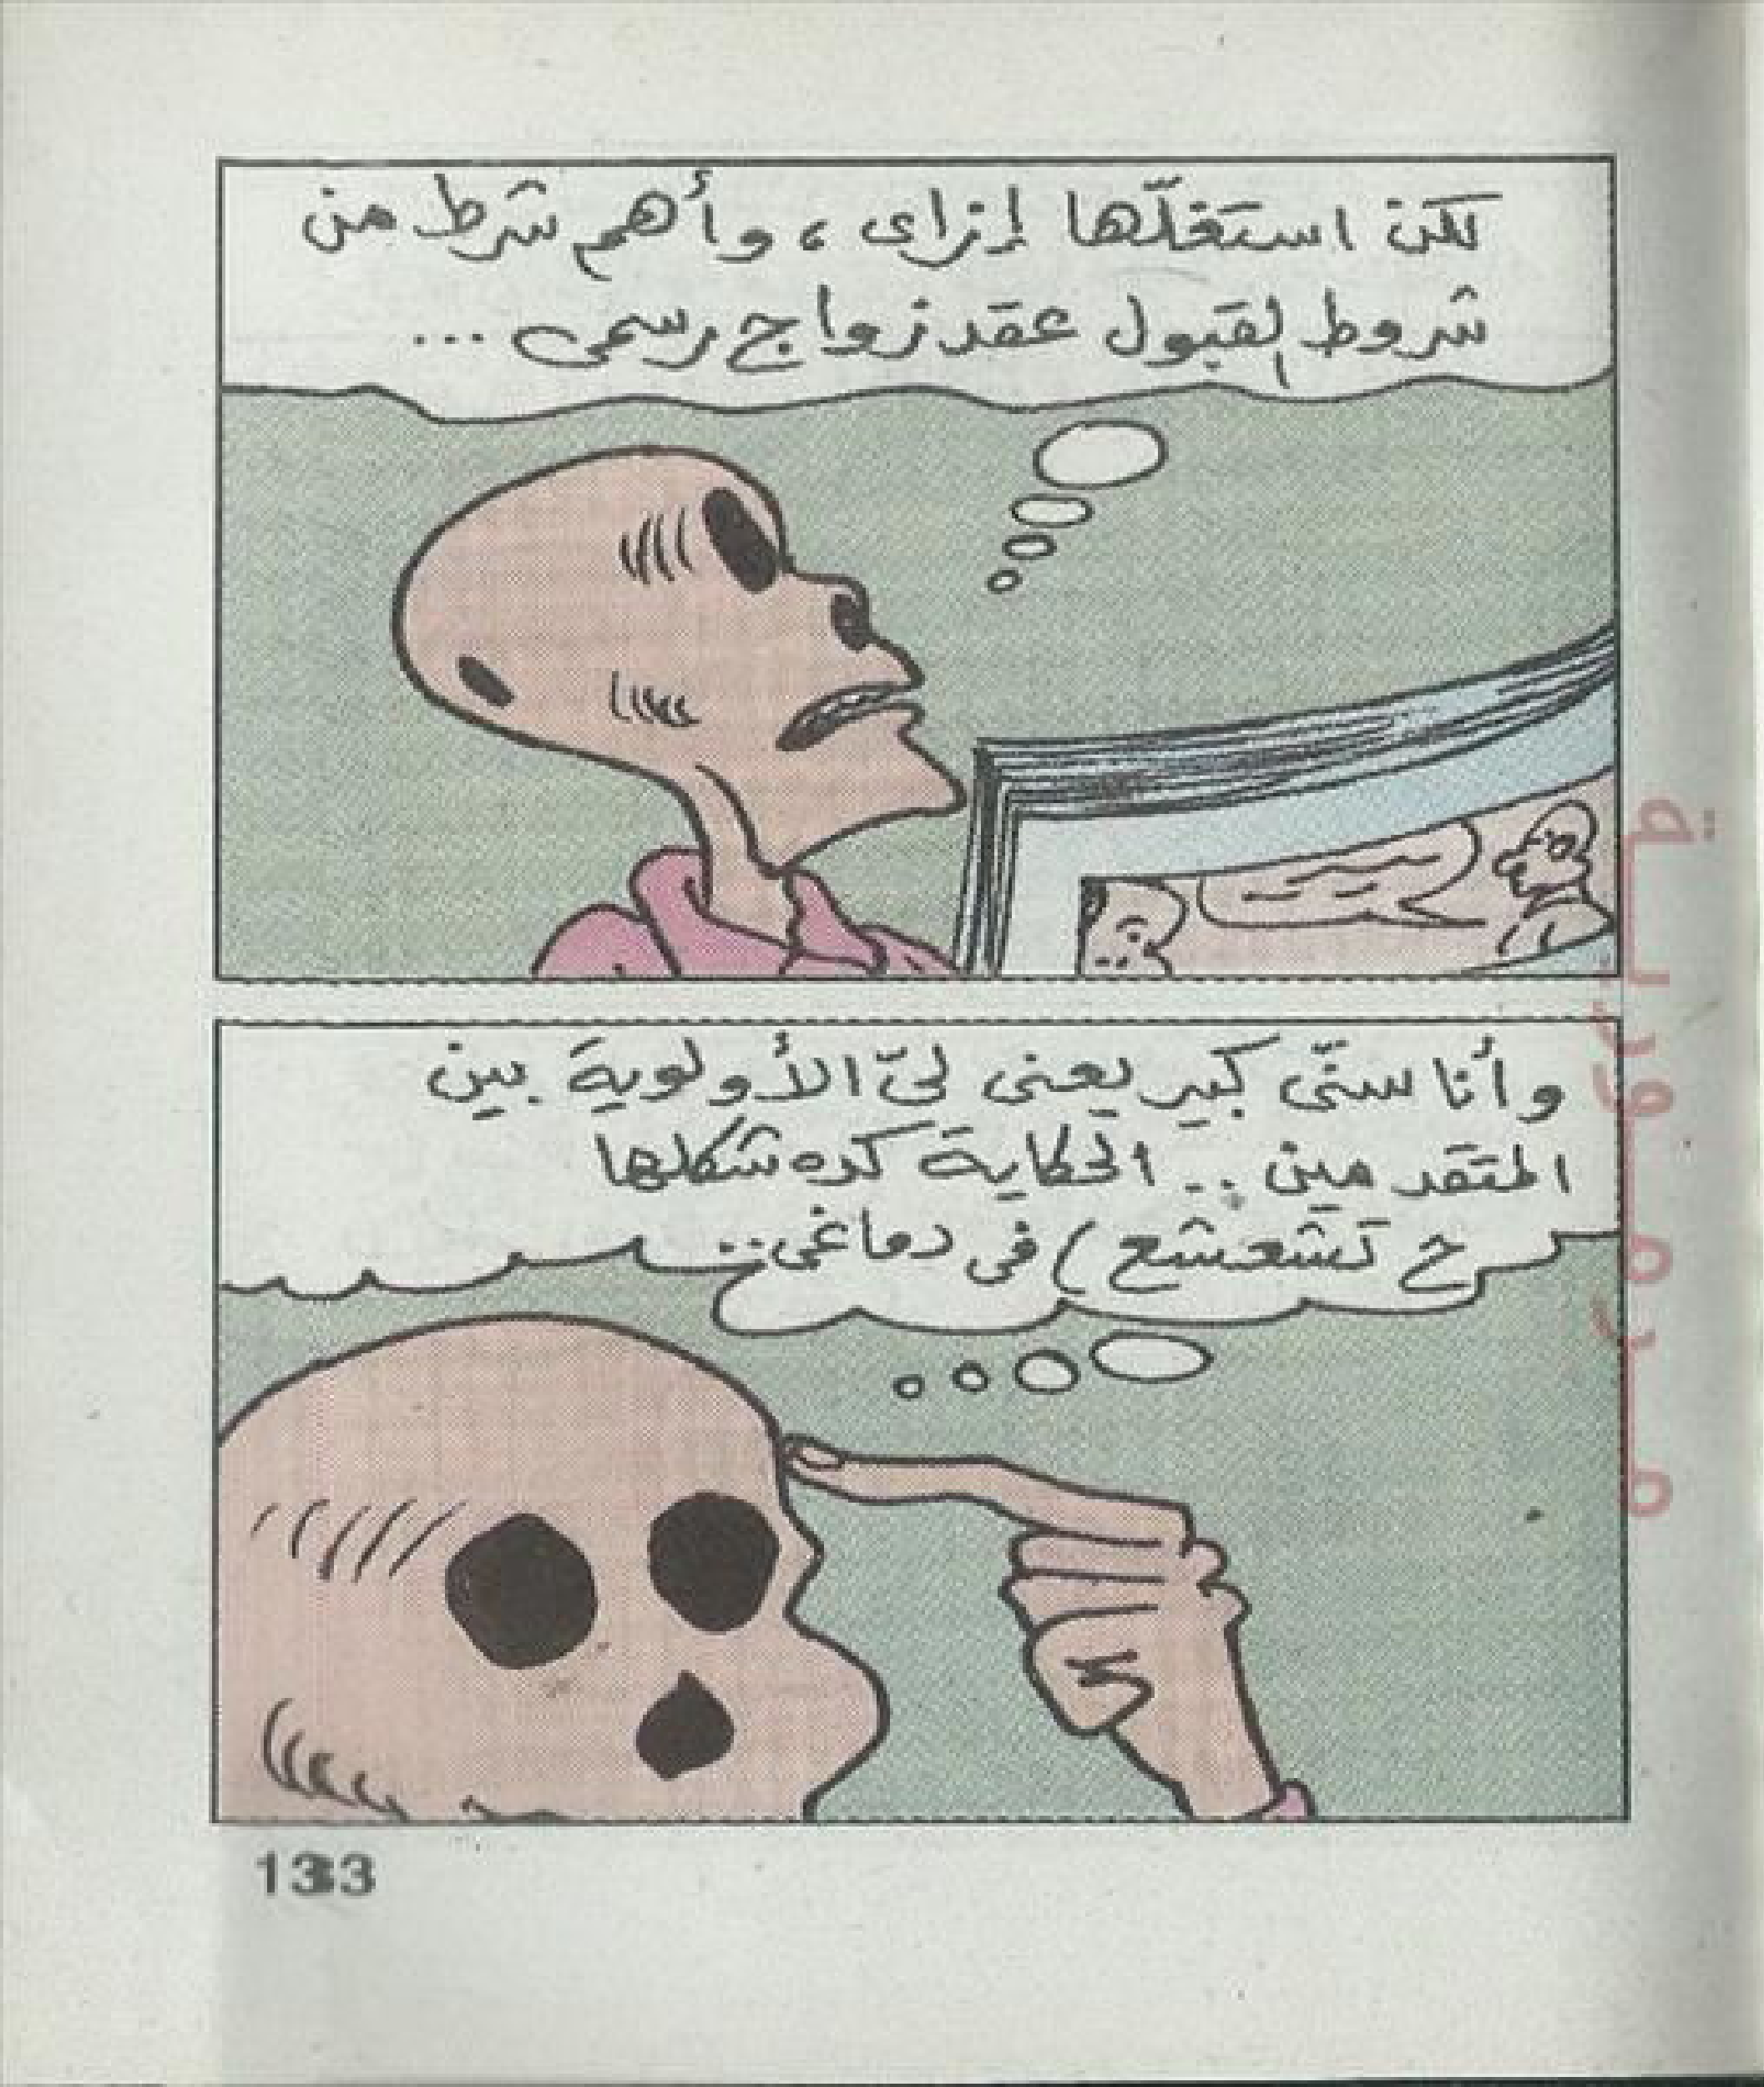 لكن استغلّها إزاى ، وأهم شرط من
شروط القبول عقد زواج رسمى ...
وأنا سنّى كبير يعنى ليّ الأولوية بين
المتقدمين .. الحكاية كده شكلها
ح تشعشع ) فى دماغى ..
133